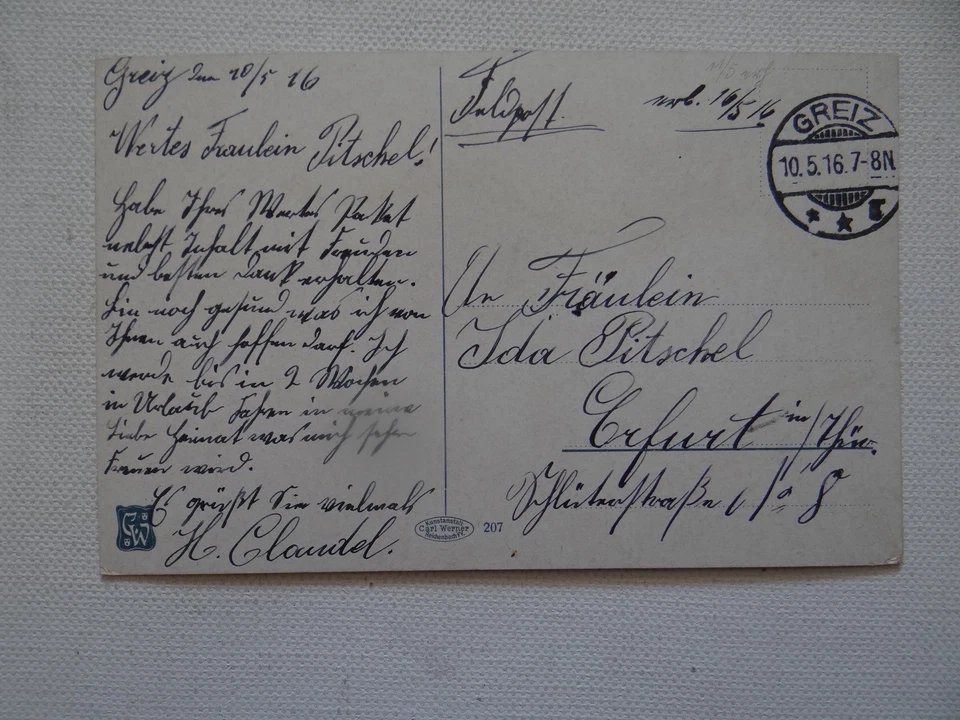 Greiz den 10/5 16
Wertes Fraulein Pitschel!
Habe Ihres Wertes Paket
nebst Inhalt mit Freuden
und besten Dank erhalten.
Bin noch gesund was ich von
Ihnen auch hoffen darf. Ich
werde bis in 2 Wochen
in Urlaub Fahren in meine
Liebe Heimat was mich sehr
Freuen wird.
Es grüßt Sie vielmals
H. Claudel.
Feldpost.
16/5 16
GREIZ
10.5.16.7-8N.
An Fräulein
Ida Pitschel
Erfurt in/Thür.
Schlüterstraße
CW
Kunstanstalt
Carl Werner
Reichenbach i/V.
207